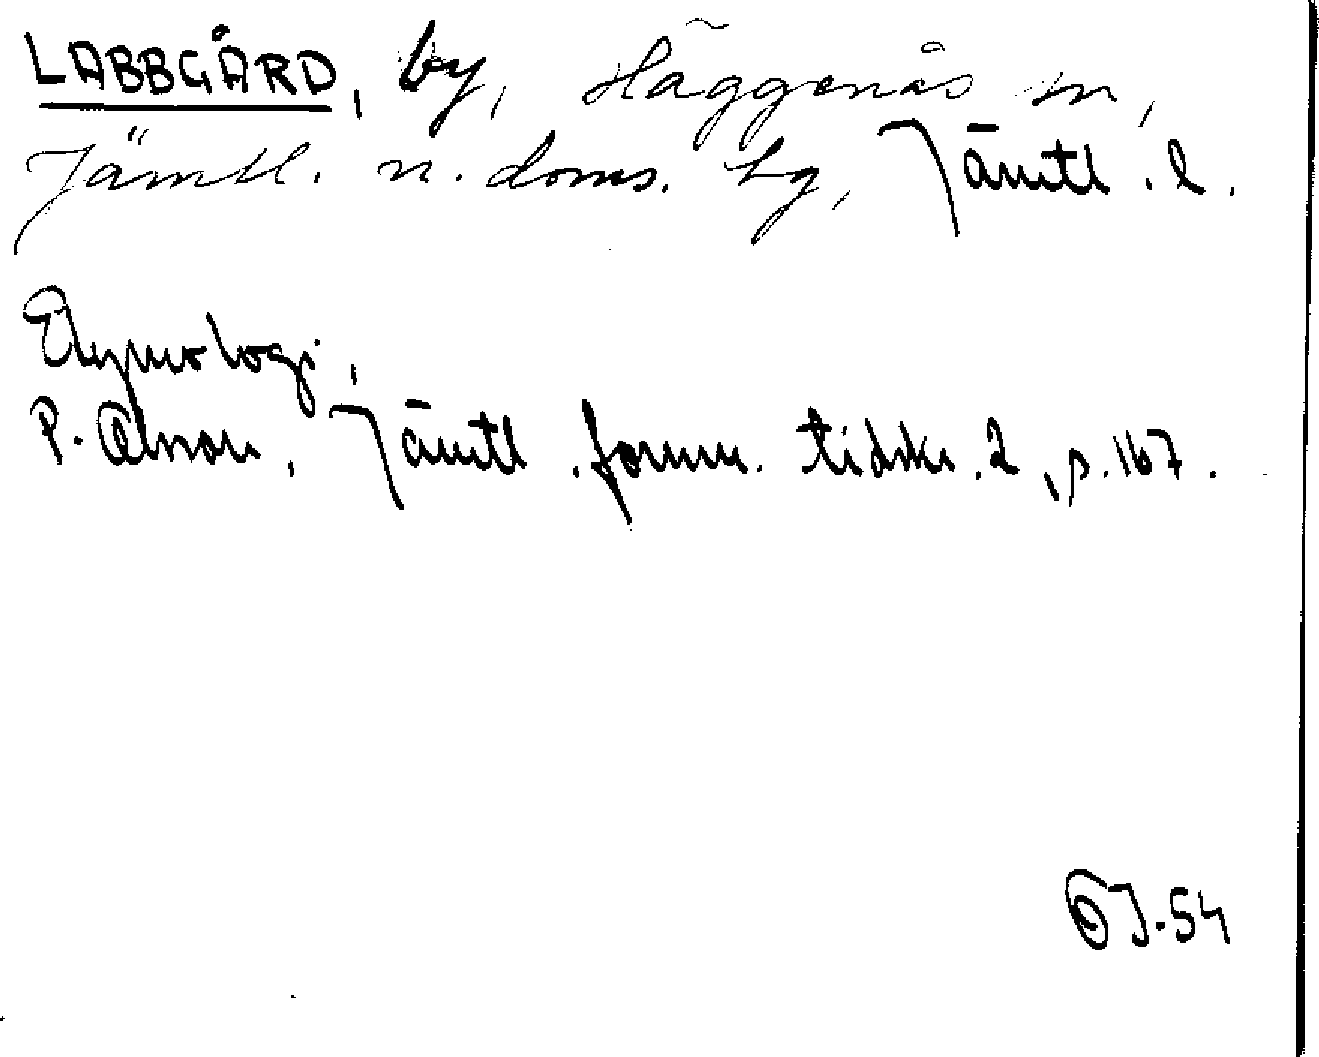 LABBGÅRD, by, Häggenås sn,
Jämtl. n. doms. tg, Jämtl. l.
Etymologi,
P. Olsson, Jämtl. fornm. tidskr. 2, s. 167.
OJ-54